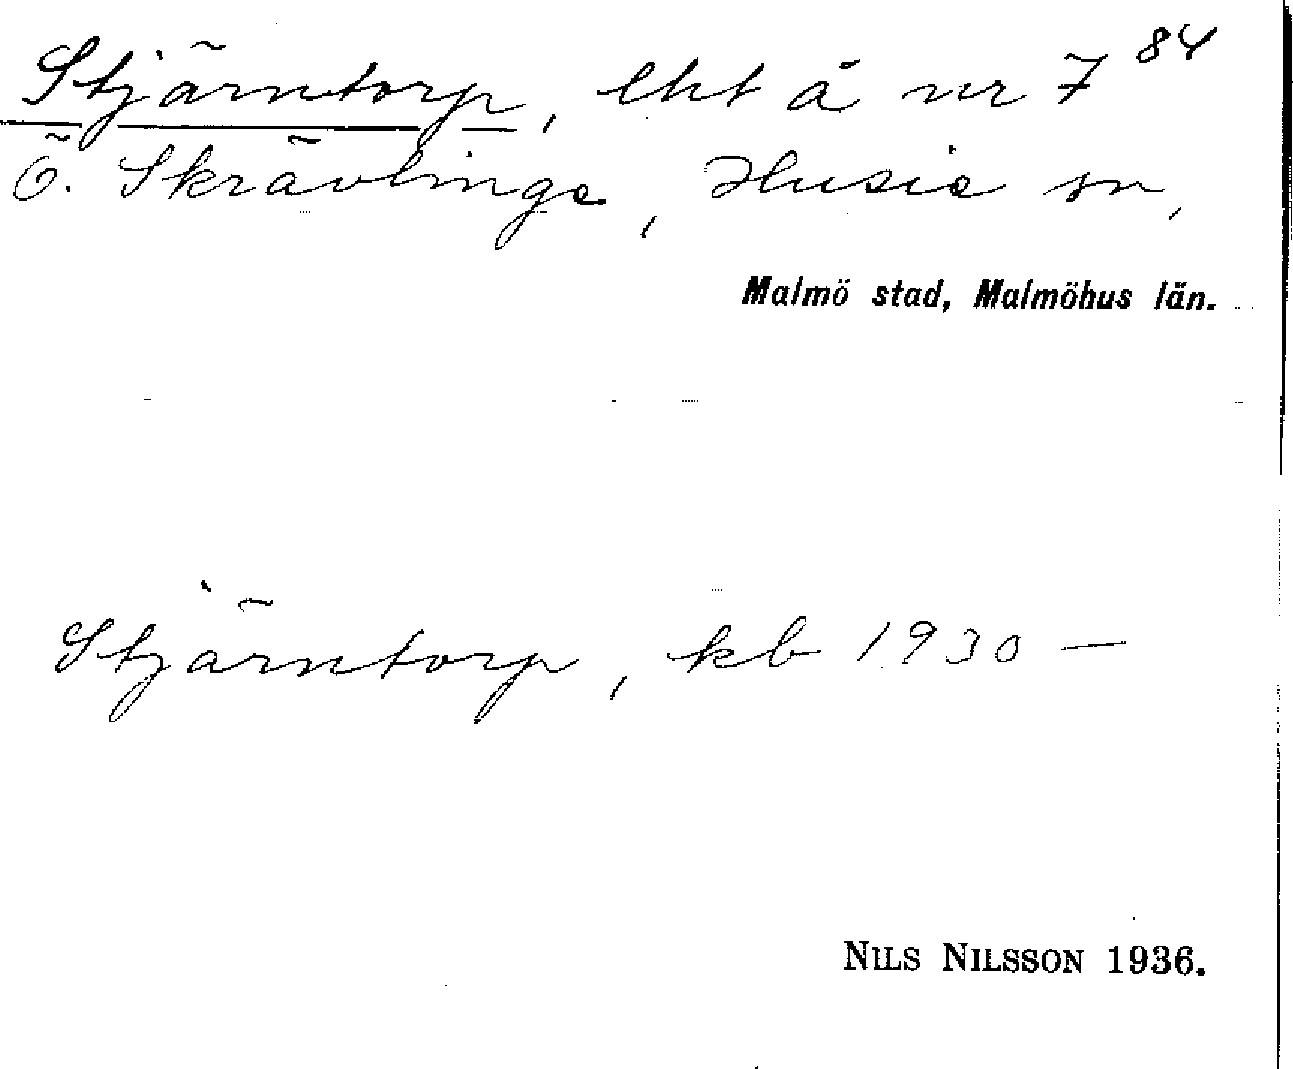 Stjärntorp, lht å nr 7 84
Ö. Skrävlinge, Husie sn,
Malmö stad, Malmöhus län.
Stjärntorp, kb 1930 —
NILS NILSSON 1936.